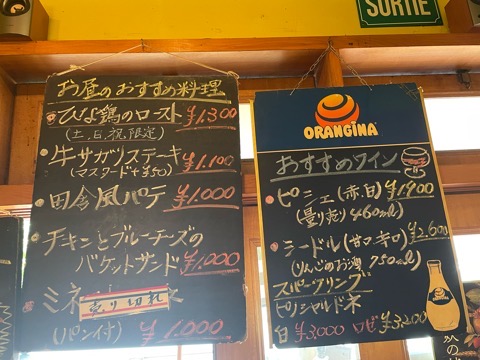 SORTIE
お昼のおすすめ料理
ひな鶏のロースト ¥1,300
(土,日,祝,限定)
牛サガリステーキ ¥1,100
(マスタード+¥50)
田舎風パテ ¥1,000
チキンとブルーチーズの
バケットサンド ¥1,000
ミネ
売り切れ
(パン付) ¥1,000
ORANGINA
おすすめワイン
ピシェ(赤・白) ¥1,900
(量り売り 460ml)
シードル(甘口辛口) ¥2,600
(りんごのお酒 750ml)
スパークリング
ピノシャルドネ
白 ¥3,000 ロゼ ¥3,200